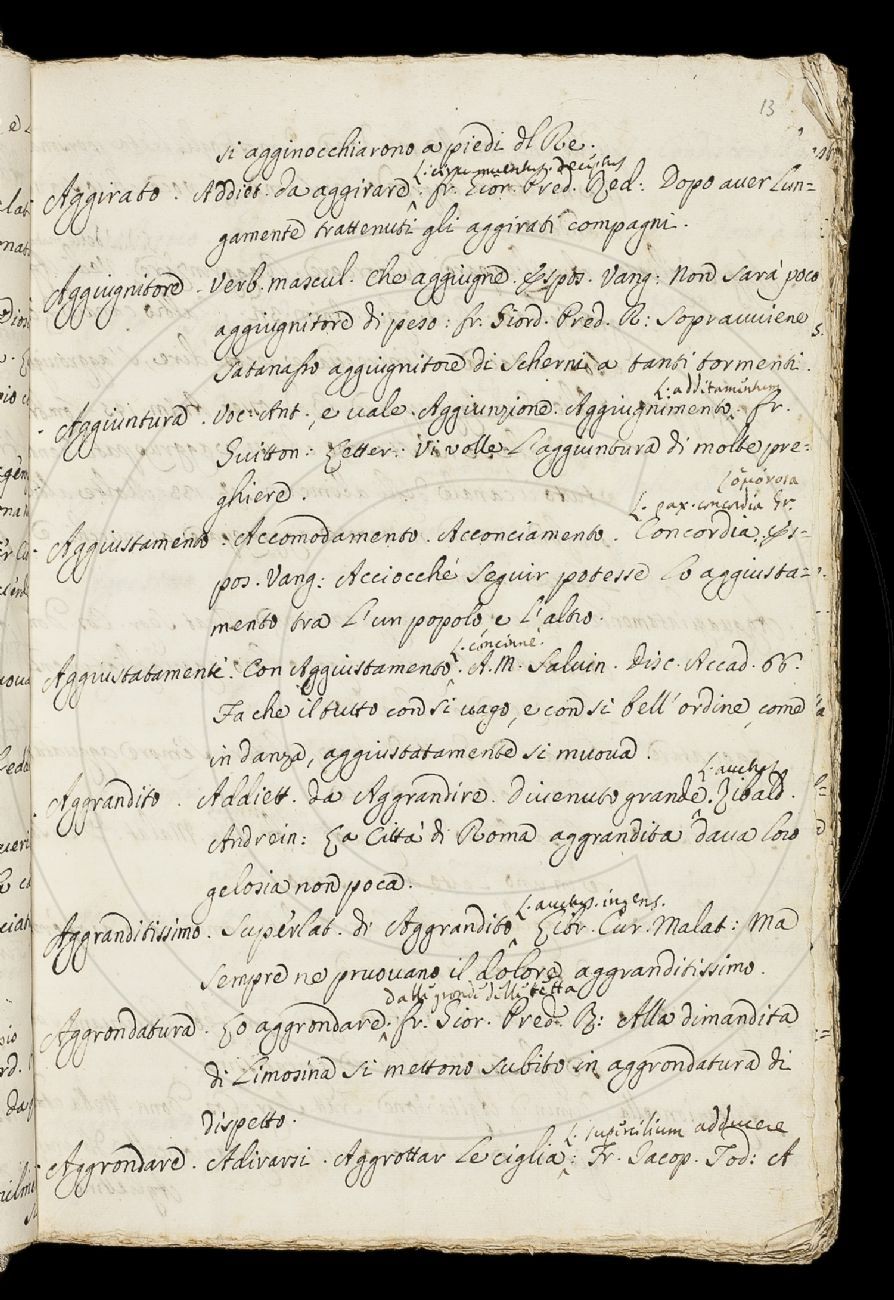 13
si agginocchiarono a piedi dl Re.
L. circumventus. deceptus
Aggirato. Addiet. da aggirare. fr. Gior. Pred. Red: Dopo aver lun=
gamente trattenuti gli aggirati compagni.
Aggiugnitore. Verb. mascul. che aggiugne. Espos. Vang: Non sarà poco
aggiugnitore di peso: fr. Giord. Pred. R: Sopravviene
Satanasso aggiugnitore di Scherni a tanti tormenti.
L: additamentum
Aggiuntura. Voc: Ant., e vale Aggiunzione. Aggiugnimento. Fr.
Guitton: Letter: Vi volle l'aggiuntura di molte pre=
ghiere.
L. pax. concordia Gr.
Aggiustamento. Accomodamento. Acconciamento. Concordia. Es=
pos. Vang: Acciocché seguir potesse lo aggiusta=
mento tra l'un popolo e l'altro.
L. concinné.
Aggiustatamente. Con Aggiustamento. A. M. Salvin. Disc. Accad. 66.
Fa che il tutto con sì vago, e con sì bell'ordine, come
in danza, aggiustatamente si muova.
L. auctus
Aggrandito. Addiett. da Aggrandire. Divenuto grande. Zibald.
Andrein: La Città di Roma aggrandita dava loro
gelosia non poca.
L. auctus. ingens.
Aggranditissimo. Superlat. di Aggrandito. Libr. Cur. Malat: Ma
sempre ne pruovano il dolore aggranditissimo.
dalle gronde delle tetta
Aggrondatura. Lo aggrondare. fr. Gior. Pred. R: Alla dimandita
di limosina si mettono subito in aggrondatura di
dispetto.
L. supercilium adducere
Aggrondare. Adirarsi. Aggrottar le ciglia: Fr. Jacop. Tod: A